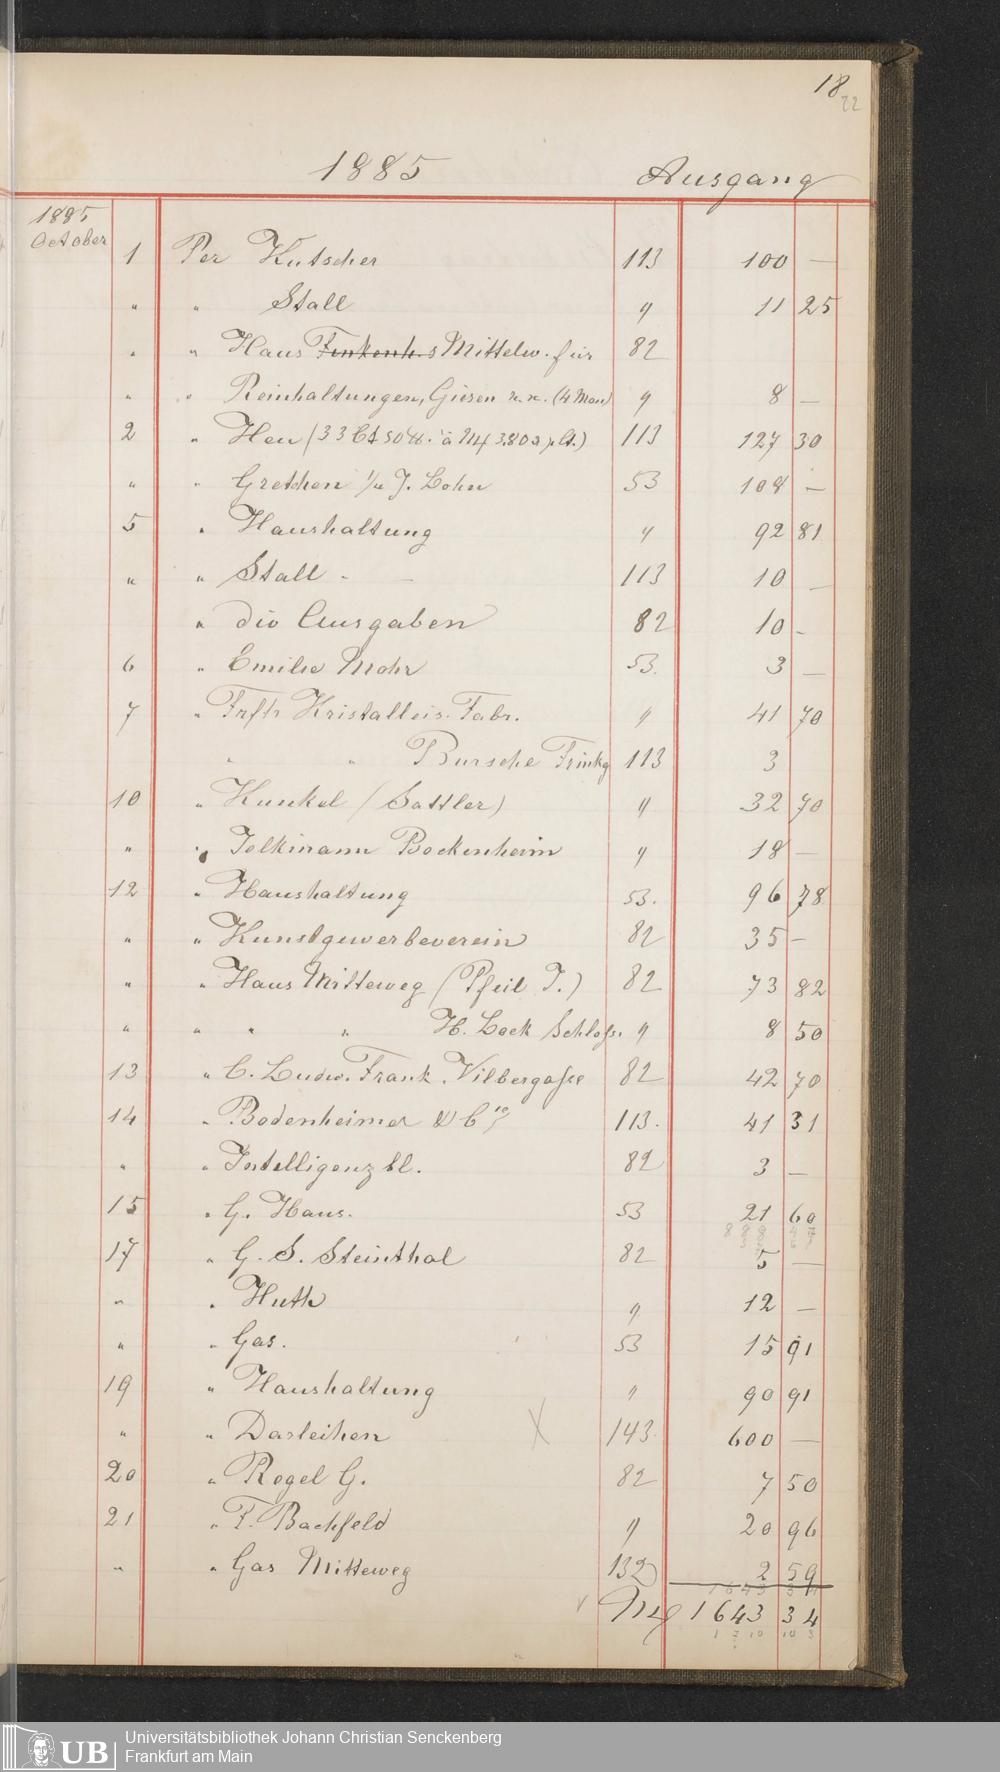 18
22
1885 Ausgang
1885
October 1 Per Kutscher 113 100 —
" " Stall " 11 25
" " Haus Mittelw. für 82
" " Reinhaltungen, Giesen (4 Mon) " 8 —
2 " Heu (33 Ct 50 à M 3.80 p Ct.) 113 127 30
" " Gretchen J. Lohn 53 108 —
5 " Haushaltung " 92 81
" " Stall - — 113 10 —
" div Ausgaben 82 10 -
6 " Emilie Mohr 53. 3 —
7 " Frkftr Kristalleis. Fabr. " 41 70
" " Bursche Trinkg 113 3
10 " Kunkel (Sattler) " 32 70
" " Bockenheim " 18 —
12 " Haushaltung 53. 96 78
" " Kunstgewerbeverein 82 35 —
" " Haus Mitteweg (Pfeil J.) 82 73 82
" " " " H. Lock Schloß. " 8 50
13 " C. Ludw. Frank. Vilbergaße 82 42 70
14 " Bodenheimer & Cie 113. 41 31
" " Intelligenzbl. 82 3 —
15 " G. Haus. 53 21 60
17 " G. S. Steinthal 82 5 —
" " Huth " 12 —
" " Gas. 53 15 91
19 " Haushaltung " 90 91
" " Darleihen X 143. 600 —
20 " Rogel G. 82 7 50
21 " F. Bachfeld " 20 96
" " Gas Mitteweg 132 2 59
M 1643 34
Universitätsbibliothek Johann Christian Senckenberg
UB Frankfurt am Main